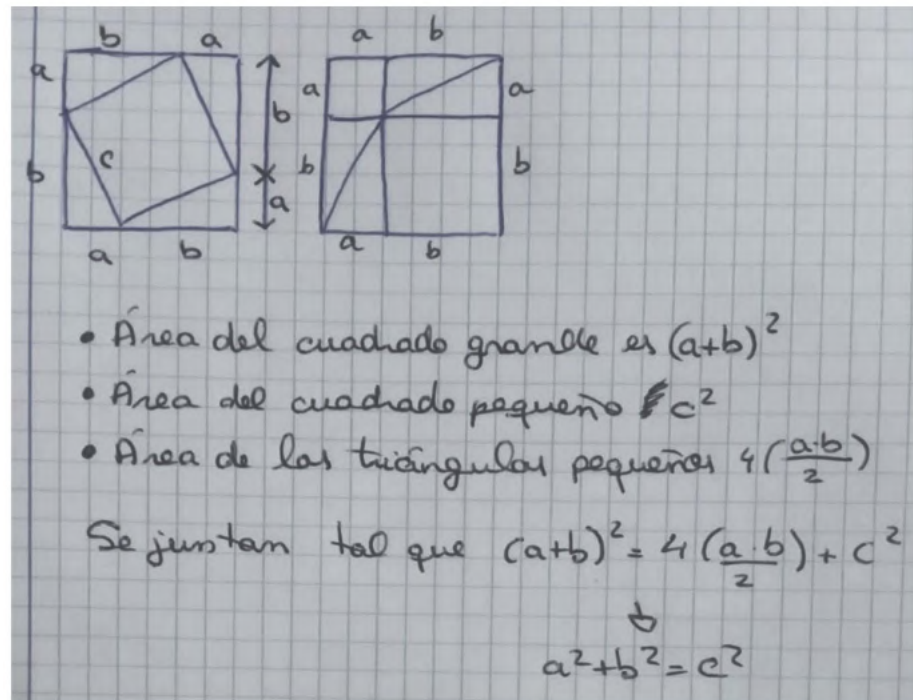 b a a b
a b a a
b c b b
a
a b a b
• Área del cuadrado grande es (a+b)²
• Área del cuadrado pequeño c²
• Área de los triángulos pequeños 4(a·b/2)
Se juntan tal que (a+b)² = 4(a·b/2) + c²
↓
a²+b²=c²